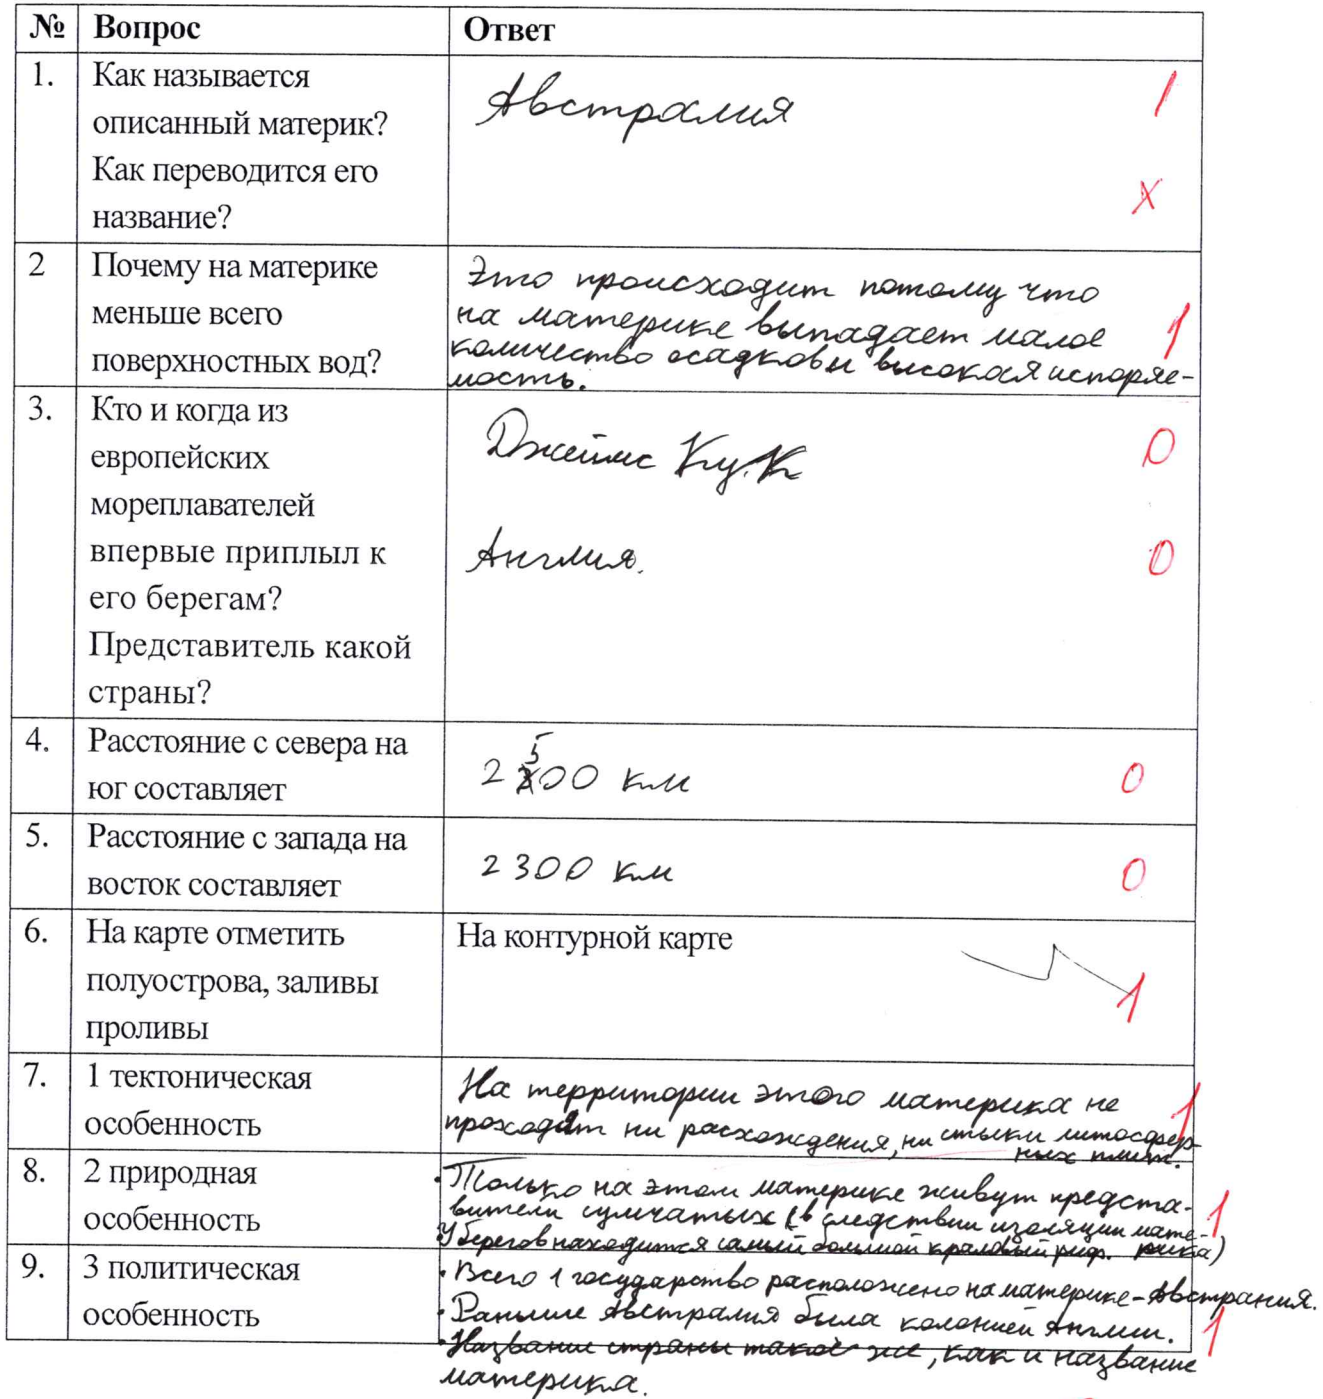 № Вопрос Ответ
1. Как называется
описанный материк?
Как переводится его
название?
Австралия 1
X
2 Почему на материке
меньше всего
поверхностных вод?
Это происходит потому что
на материке выпадает малое
количество осадков и высокая испаряе-
мость.
1
3. Кто и когда из
европейских
мореплавателей
впервые приплыл к
его берегам?
Представитель какой
страны?
Джеймс Кук 0
Англия. 0
4. Расстояние с севера на
юг составляет
2500 км 0
5. Расстояние с запада на
восток составляет
2300 км 0
6. На карте отметить
полуострова, заливы
проливы
На контурной карте
1
7. 1 тектоническая
особенность
На территории этого материка не
проходят ни расхождения, ни стыки литосфер-
ных плит.
1
8. 2 природная
особенность
· Только на этом материке живут предста-
вители сумчатых (в следствии изоляции мате-
рика)
У берегов находится самый большой кралловый риф.
1
9. 3 политическая
особенность
· Всего 1 государство расположено на материке - Австрания.
· Раньше Австралия была колонией Англии.
· Название страны такое же, как и название
материка.
1